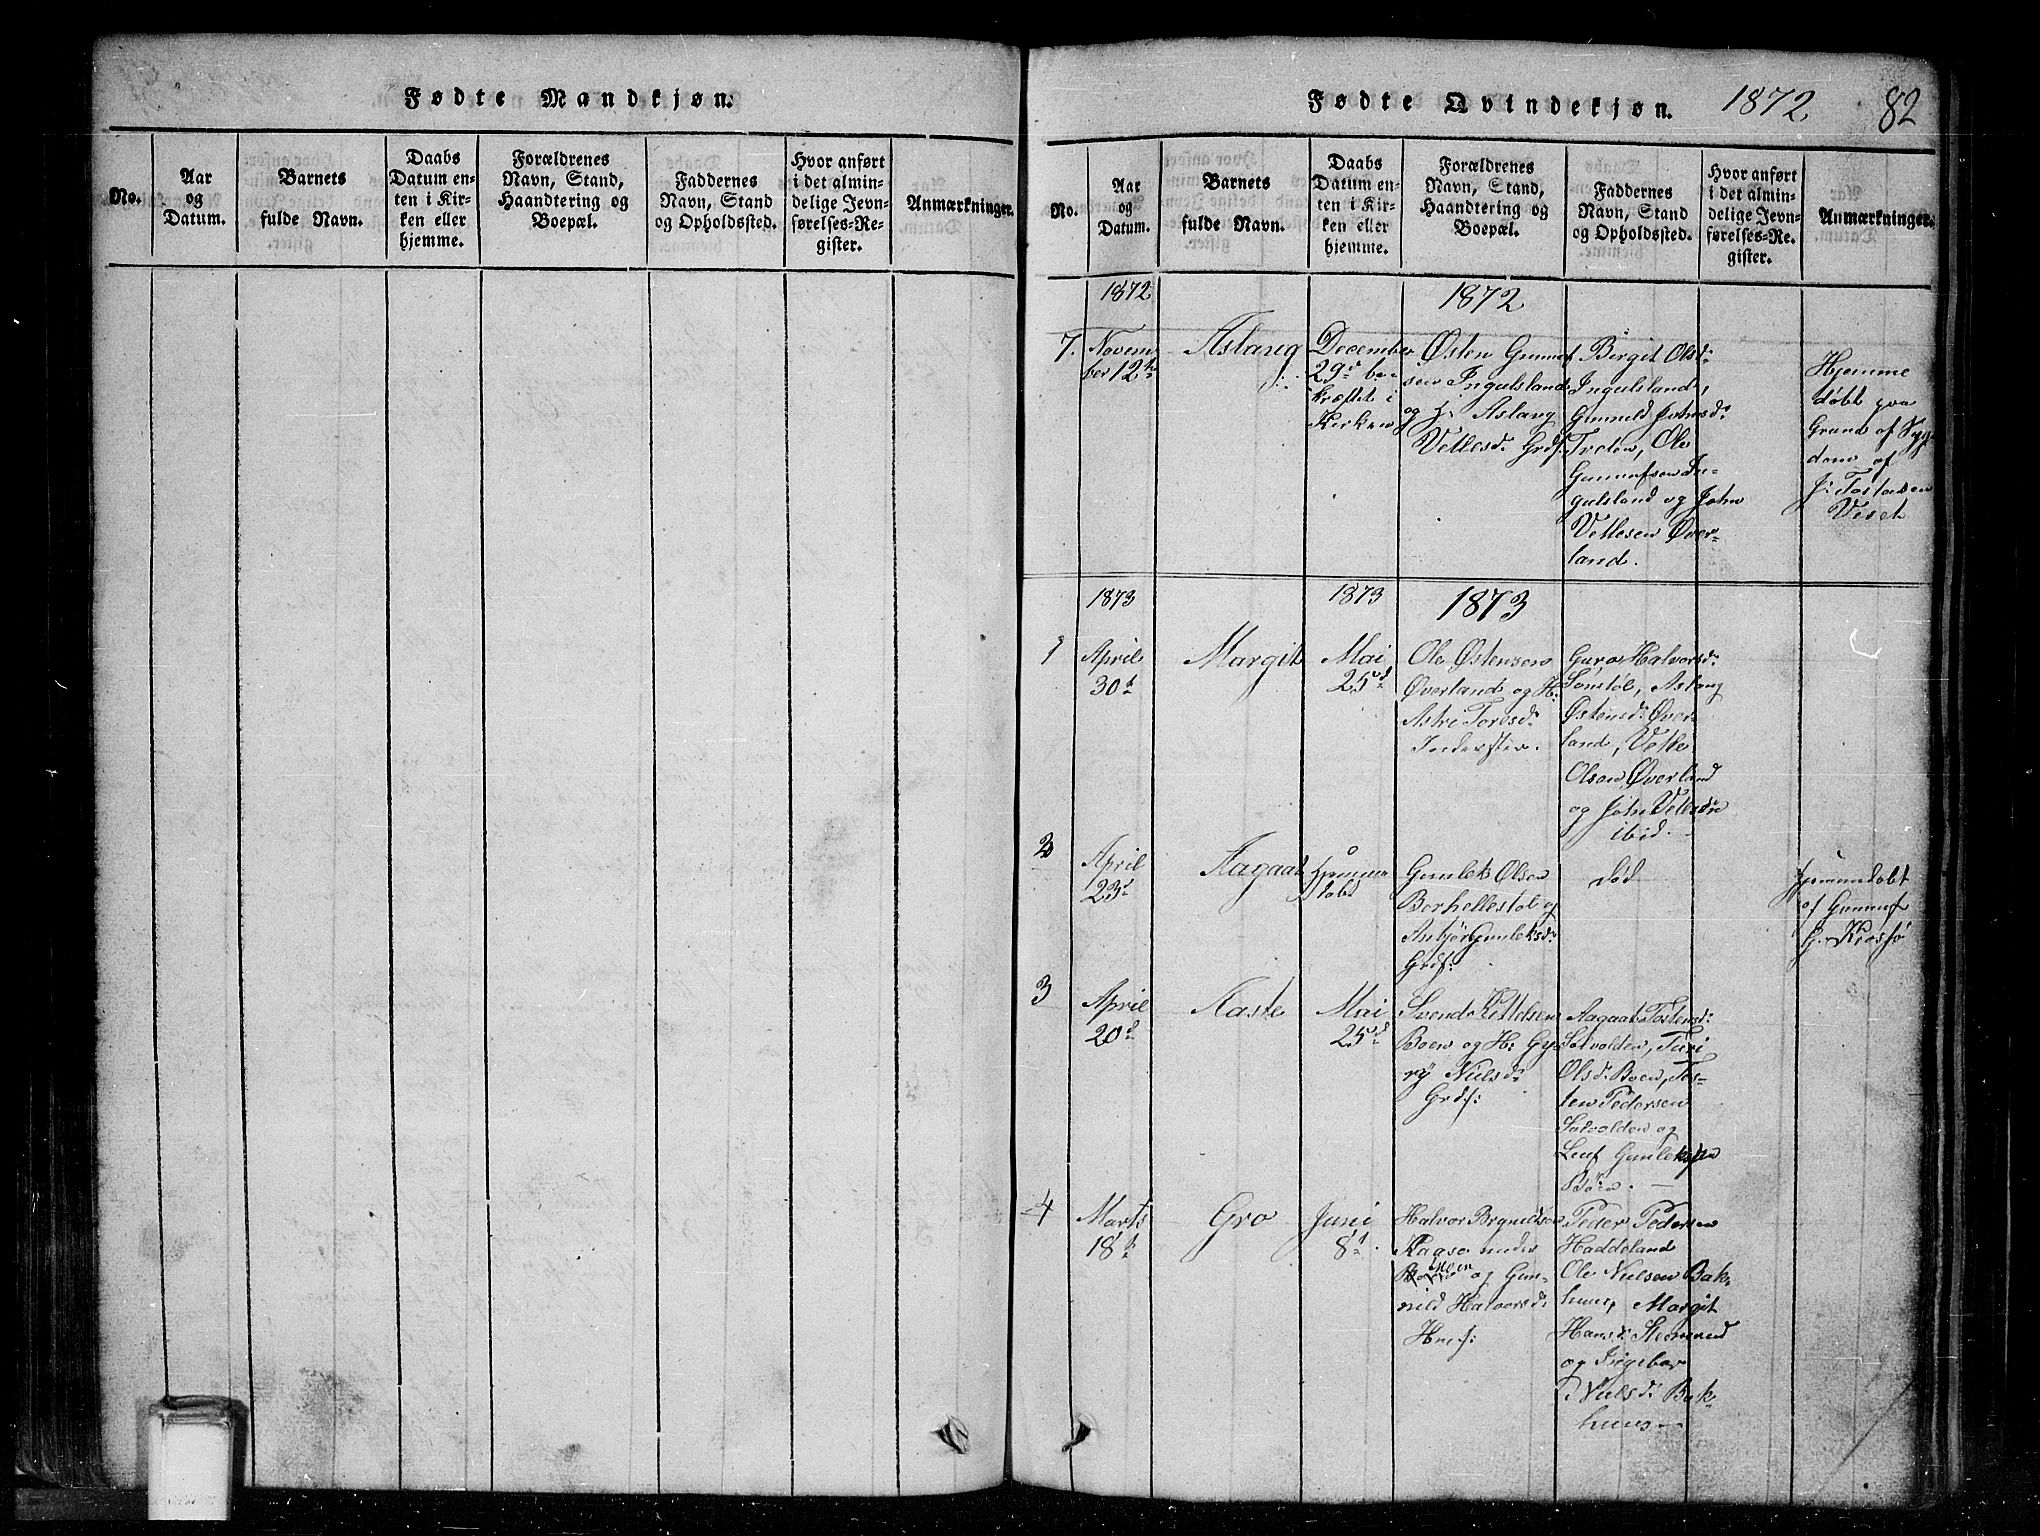 Fødte Mandkjøn.
No.
Aar
og
Datum.
Barnets
fulde Navn.
Daabs
Datum en-
ten i Kir-
ken eller
hjemme.
Forældrenes
Navn, Stand,
Haandtering og
Boepæl.
Faddernes
Navn, Stand
og Opholdssted.
Hvor anført
i det almin-
delige Jevn-
førelses-Re-
gister.
Anmærkninger.
Fødte Qvindekjøn. 1872. 82
No.
Aar
og
Datum.
Barnets
fulde Navn.
Daabs
Datum en-
ten i Kir-
ken eller
hjemme.
Forældrenes
Navn, Stand,
Haandtering og
Boepæl.
Faddernes
Navn, Stand
og Opholdssted.
Hvor anført
i det almin-
delige Jevn-
førelses-Re-
gister.
Anmærkninger.
1872
1872
7.
Novem
ber 12te
Aslaug
December
29d be-
kræftet i
Kirken
Østen Gunnuf
sen Ingulsland
og H. Aslaug
Vetlesd. Grdf.
Birgit Olsd:
Ingulsland,
Gunnild Johnsd:
Treten, Ole
Gunnufsen In-
gulsland og John
Vetlesen Øver-
land.
Hjemme
døbt paa
Grund af Syg-
dom af
J: Tostesen
Veset
1873
1873
1873
1
April
30t
Margit
Mai
25d
Ole Østensen
Øverland og H:
Astre Toresd:
Inderster.
Guro Halvorsd:
Sønstøl, Aslaug
Østensd: Øver-
land, Vetle
Olsen Øverland
og John Vetlesen
ibid.
2
April
23d
Aagaat
Hjemme
døbt
Gunlek Olsen
Berhellestøl og
Anbjør Gunleksd:
Grdf:
død
Hjemmedøbt
af Gunnuf
G. Krossø
3
April
20d
Aaste
Mai
25d
Svend Kittelsen
Boen og H: Gy-
rý Nielsd:
Grdf:
Aagaat Tostensd:
Sølvolden, Turi
Olsd: Boen, Tos-
ten Pedersen
Sølvolden og
Leuf Gunleksen
Bøen.
4
Marts
18t
Gro
Juni
8d
Halvor Brynildsen
Raaso under
Moen og Gun-
nild Halvorsd:
Hmf:
Peder Pedersen
Haddeland
Ole Nielsen Bak-
huus, Margit
Hansd: Stemrud
og Ingebor
Nielsd: Bak-
huus